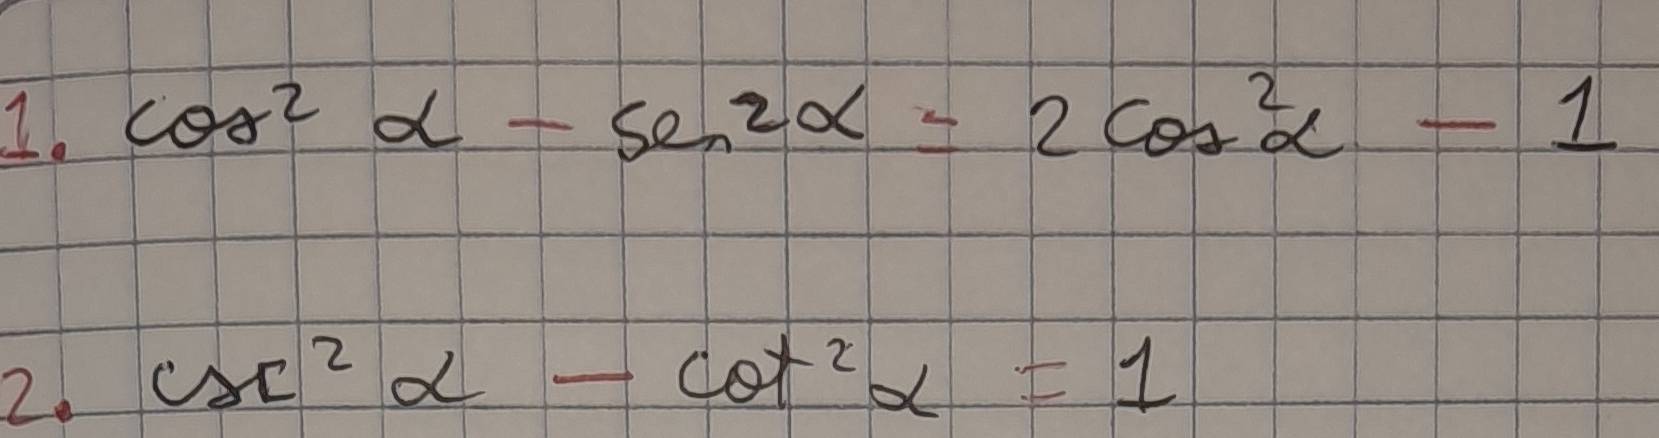 1. cos² α - sen²α = 2cos²α - 1
2. csc² α - cot²α = 1